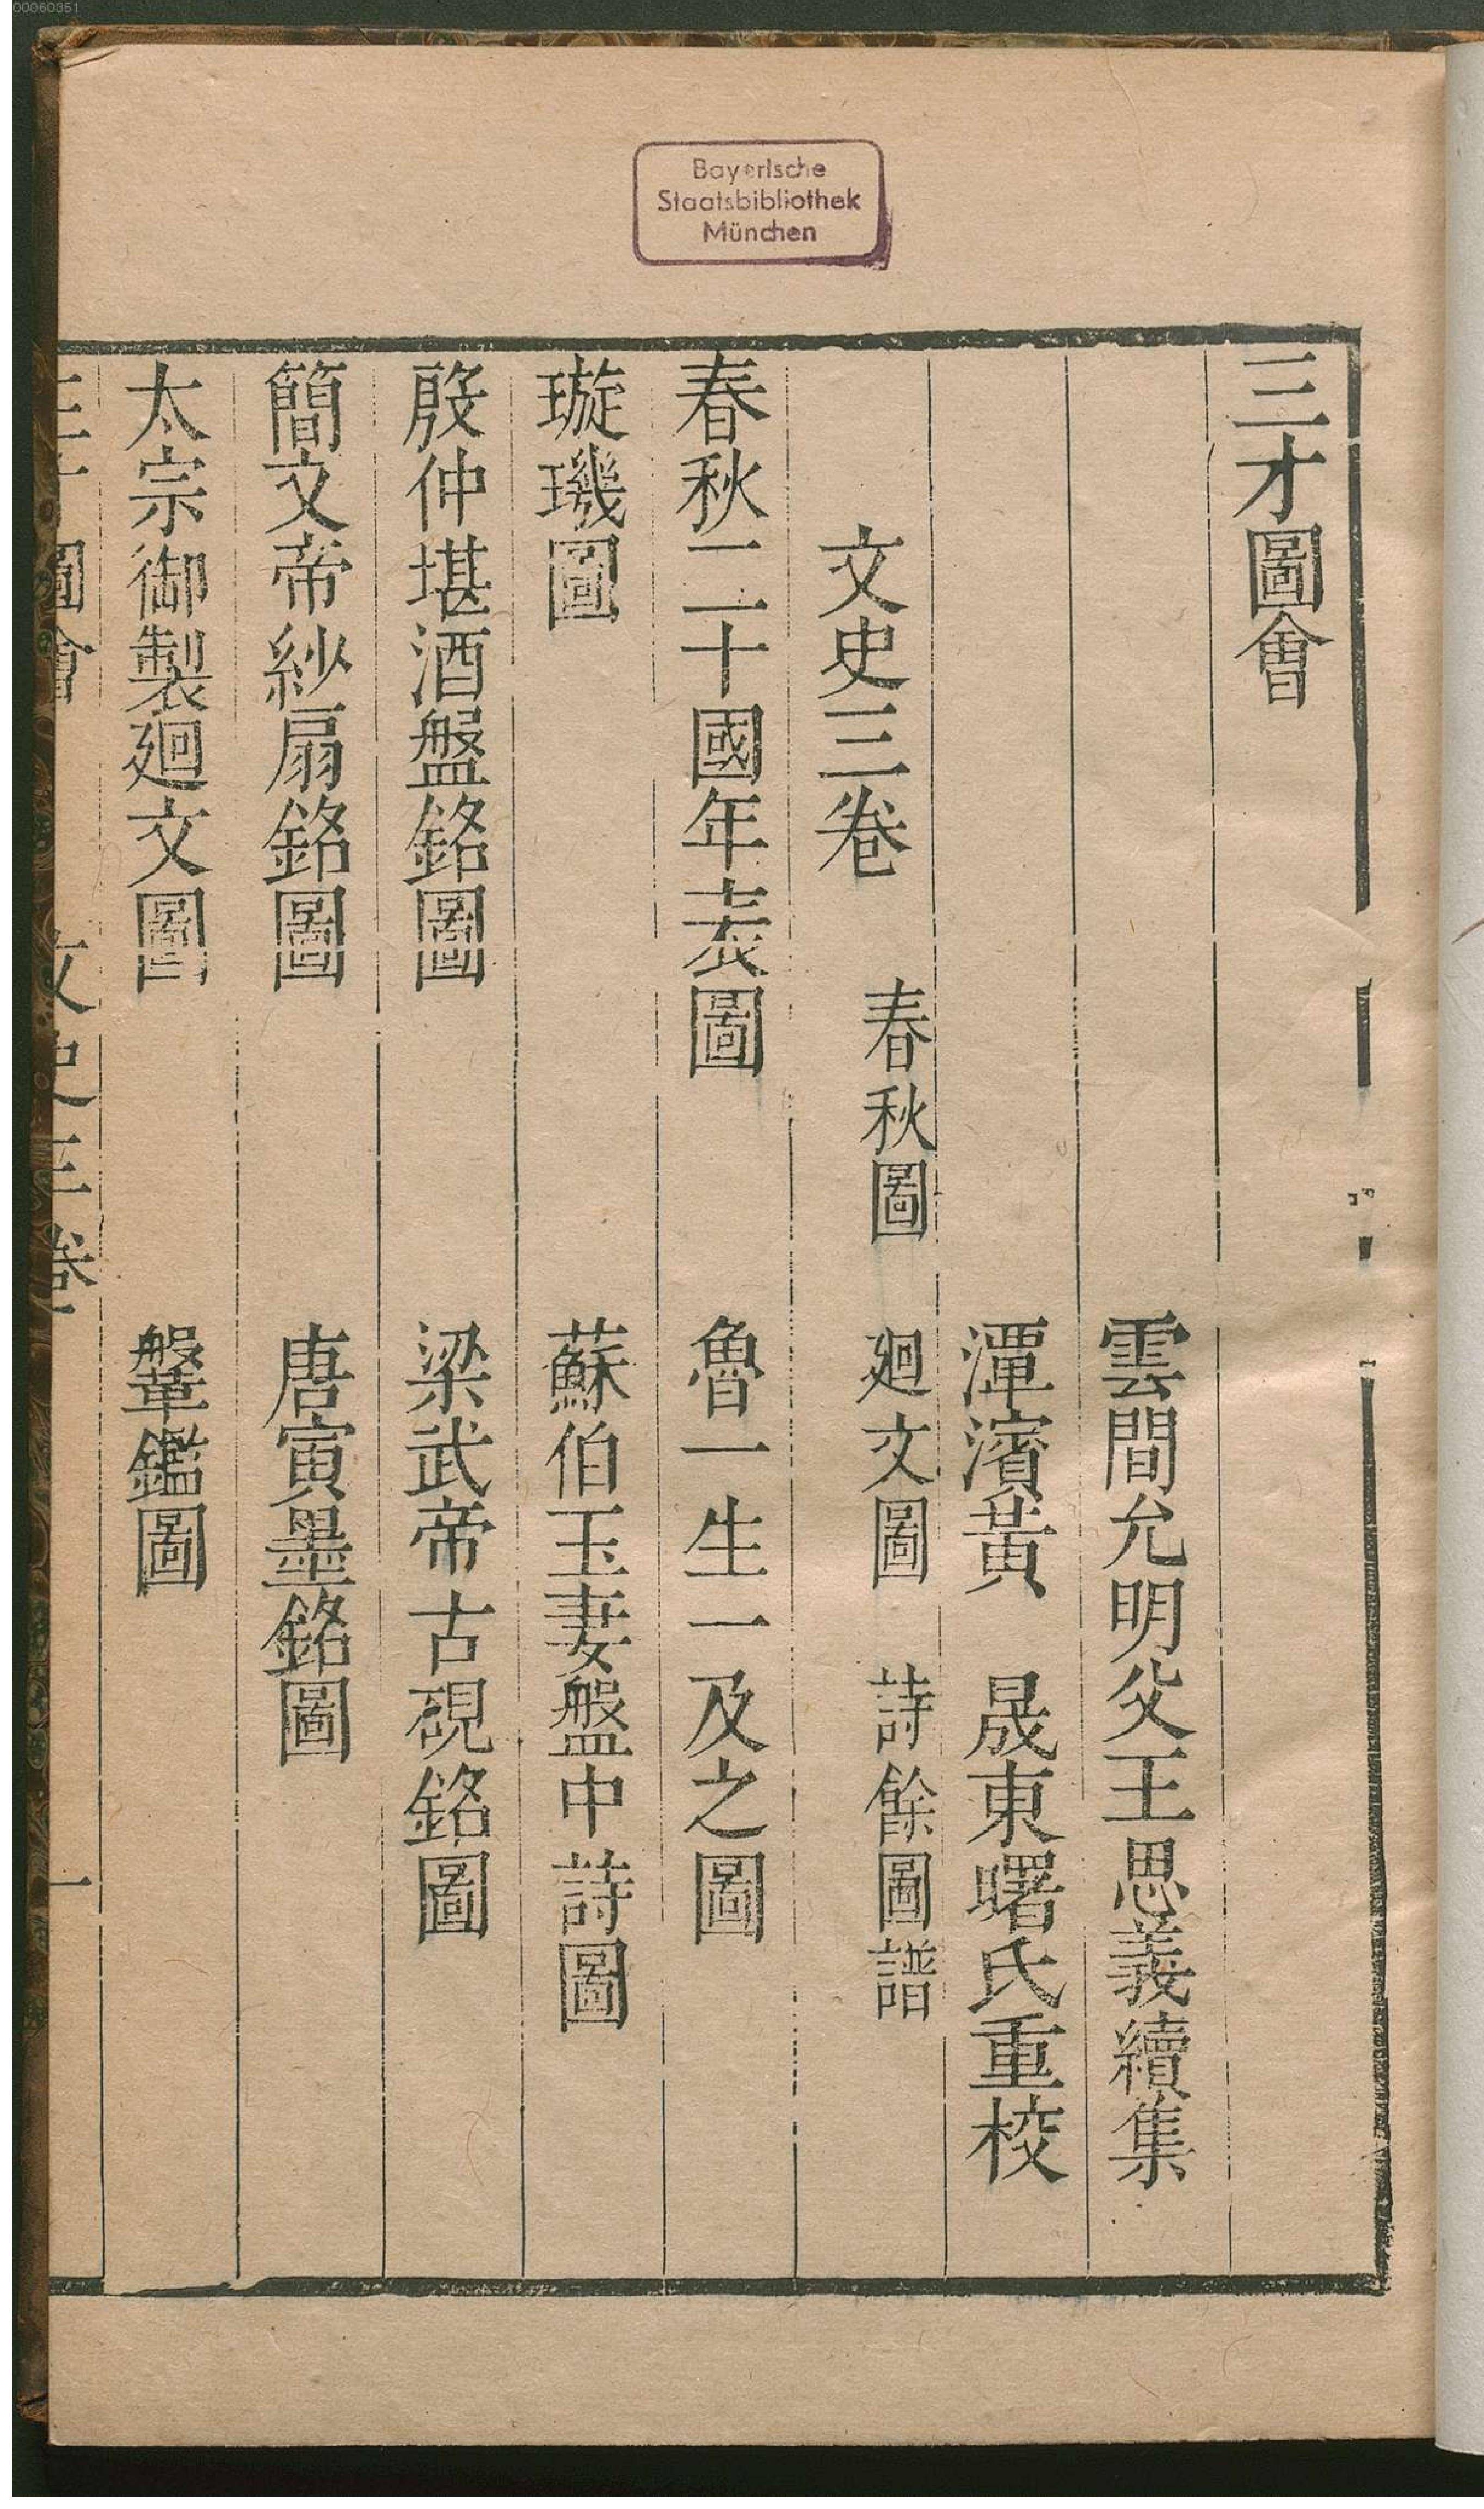 00060351
Bayerische
Staatsbibliothek
München
三才圖會
雲間允明父王思義續集
潭濱黃　晟東曙氏重校
文史三卷　春秋圖　廻文圖　詩餘圖譜
春秋二十國年表圖　魯一生一及之圖
璇璣圖　蘇伯玉妻盤中詩圖
殷仲堪酒盤銘圖　梁武帝古硯銘圖
簡文帝紗扇銘圖　唐寅墨銘圖
太宗御製廻文圖　鞶鑑圖
三才圖會　文史三卷　一